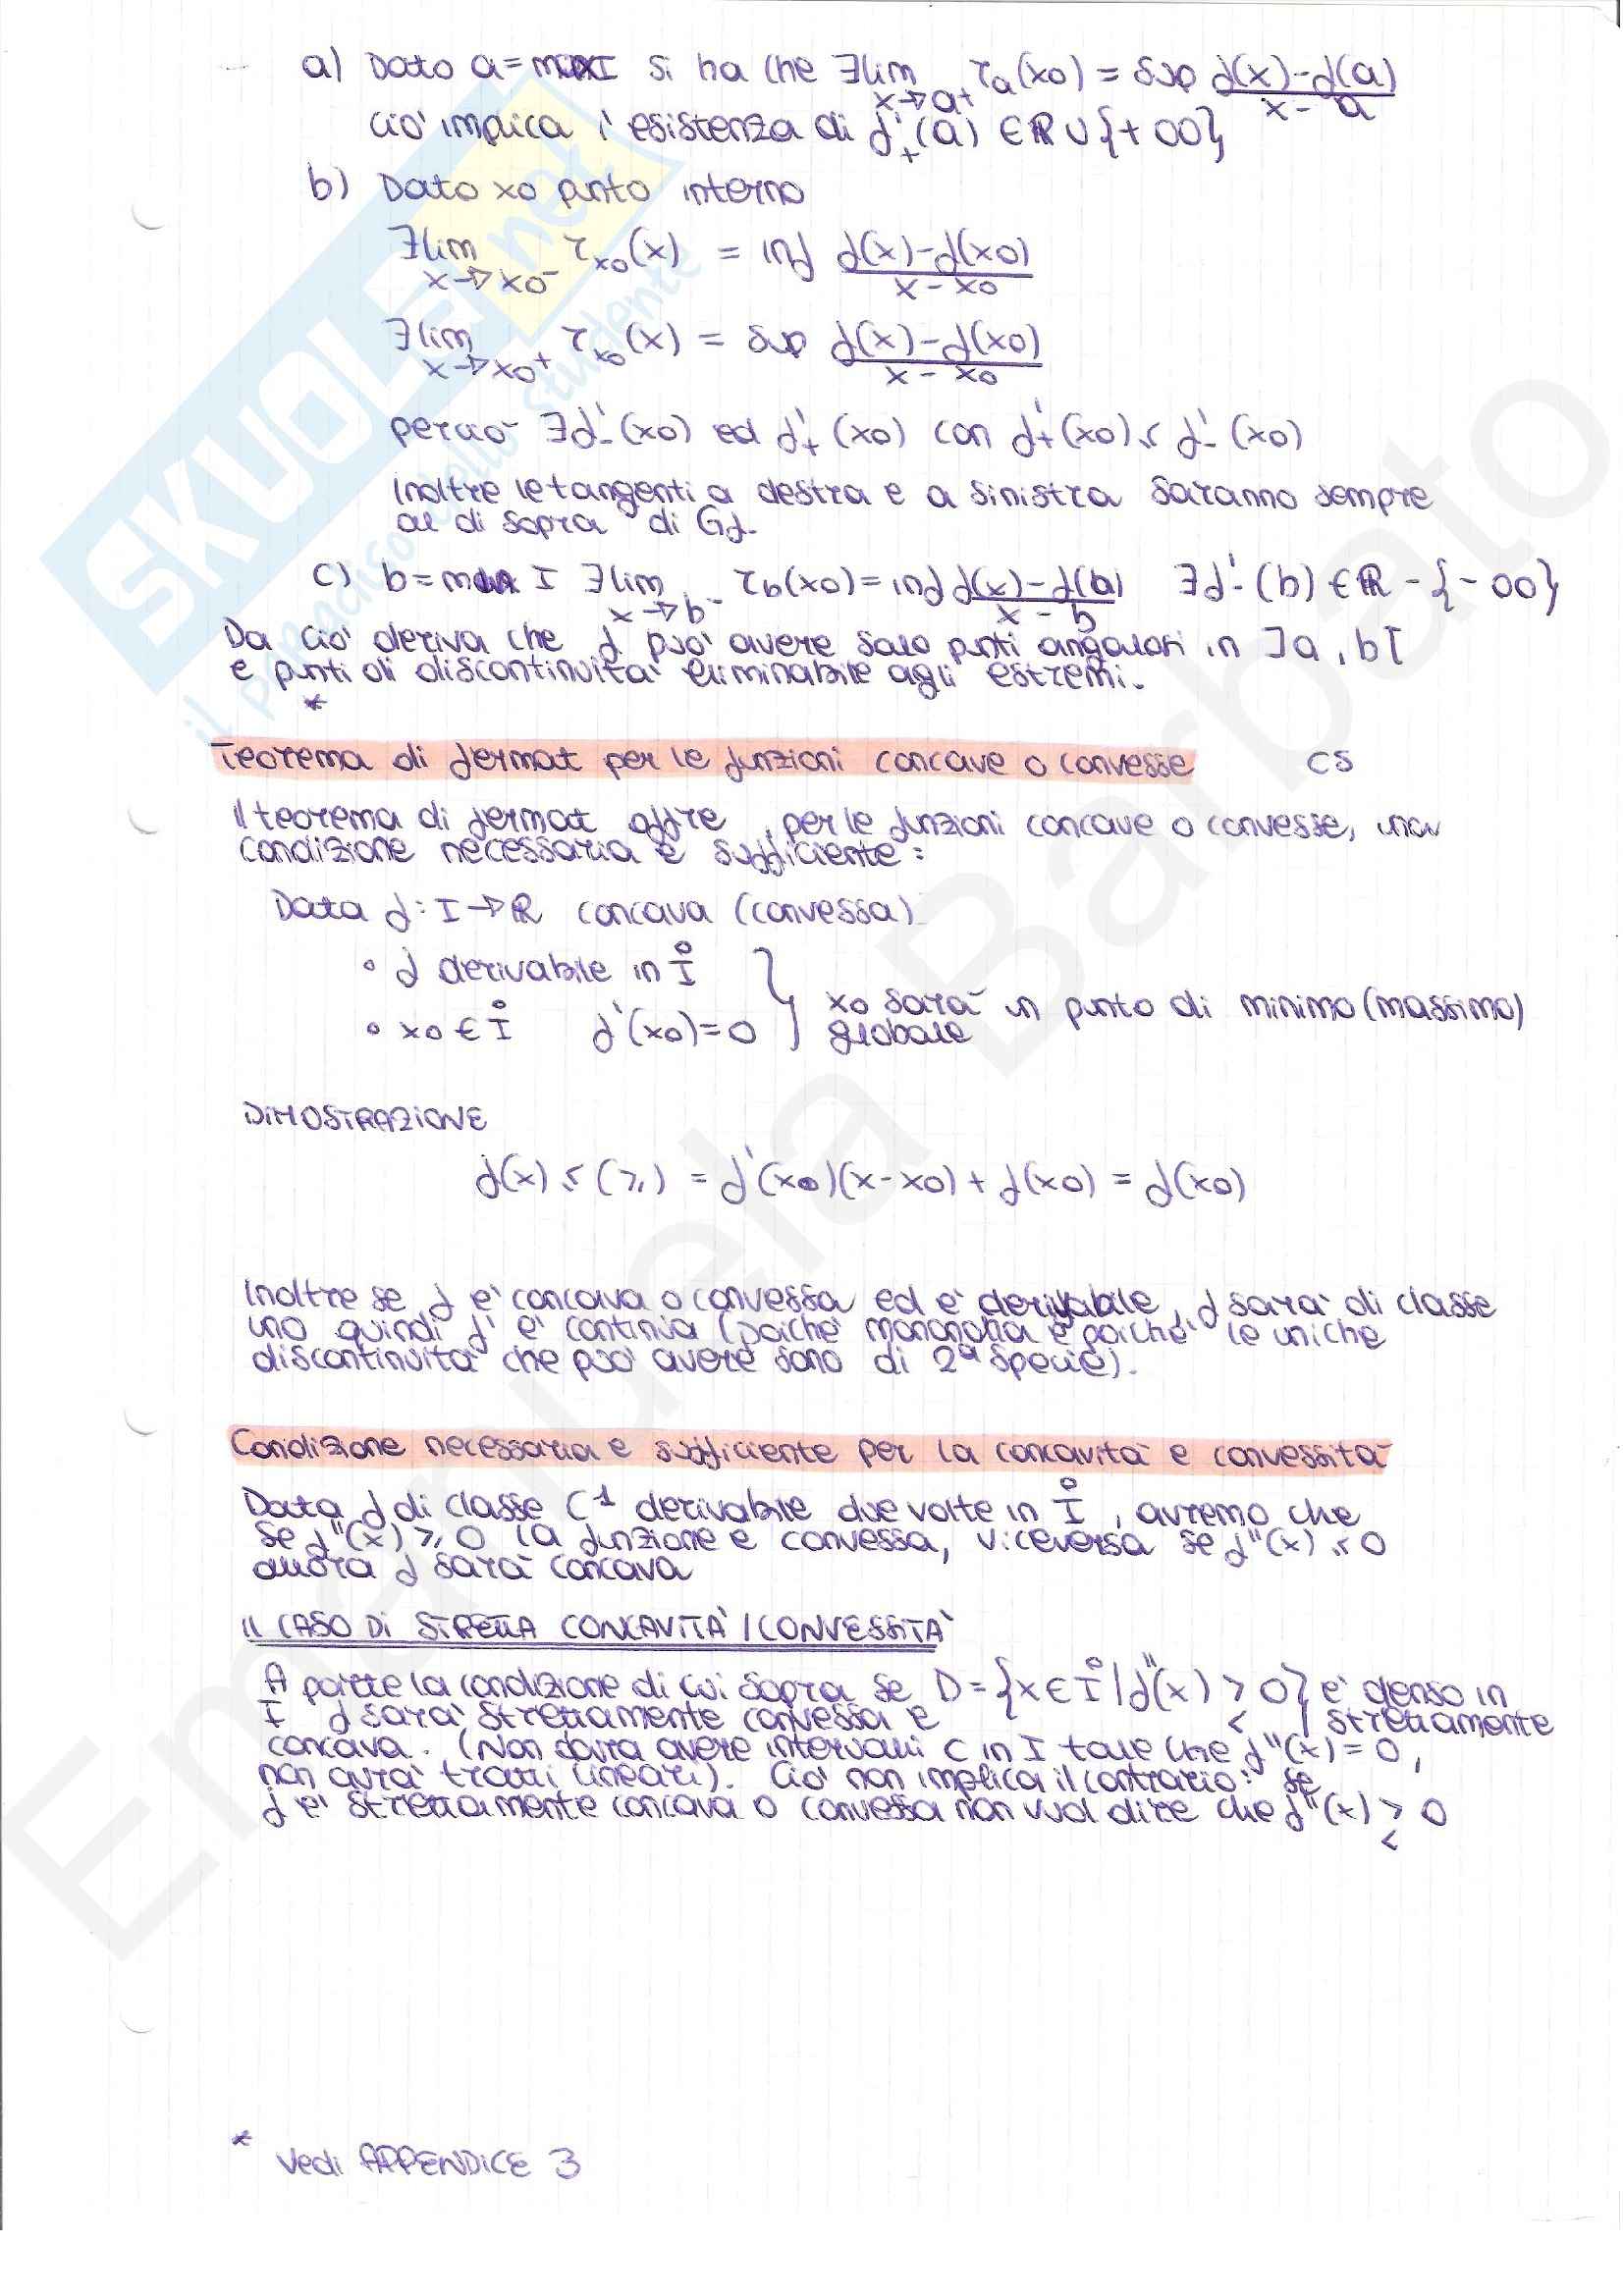 a) Dato a = max I si ha che ∃ lim x→a+ τa(x0) = sup f(x)-f(a) / x-a
ciò implica l'esistenza di f'+(a) ∈ R ∪ {+∞}
b) Dato x0 punto interno
∃ lim x→x0- τx0(x) = inf f(x)-f(x0) / x-x0
∃ lim x→x0+ τx0(x) = sup f(x)-f(x0) / x-x0
perciò ∃ f'-(x0) ed f'+(x0) con f'+(x0) ≤ f'-(x0)
Inoltre le tangenti a destra e a sinistra saranno sempre
al di sopra di Gf.
c) b = I ∃ lim x→b- τb(x0) = inf f(x)-f(b) / x-b ∃ f'-(b) ∈ R - {-∞}
Da ciò deriva che f può avere solo punti angolari in ]a, b[
e punti di discontinuità eliminabile agli estremi.
*
Teorema di fermat per le funzioni concave o convesse CS
Il teorema di fermat offre, per le funzioni concave o convesse, una
condizione necessaria e sufficiente:
Data f: I → R concava (convessa)
• f derivabile in I°
• x0 ∈ I° f'(x0)=0 } x0 sarà un punto di minimo (massimo)
globale
DIMOSTRAZIONE
f(x) ≤ (≥) = f'(x0)(x-x0) + f(x0) = f(x0)
Inoltre se f è concava o convessa ed è derivabile, f sarà di classe
uno quindi f' è continua (poiché monotona e poiché le uniche
discontinuità che può avere sono di 2ª specie).
Condizione necessaria e sufficiente per la concavità e convessità
Data f di classe C1 derivabile due volte in I°, avremo che
se f''(x) ≥ 0 la funzione e convessa, viceversa se f''(x) ≤ 0
allora f sarà concava
Il CASO Di STRETTA CONCAVITÀ/CONVESSITÀ
A partte la condizione di cui sopra se D = {x ∈ I° | f''(x) > < 0} è denso in
I f sarà strettamente convessa e strettamente
concava. (Non dovrà avere intervalli C in I tale che f''(x) = 0,
non avrà tratti lineari). Ciò non implica il contrario: se
f è strettamente concava o convessa non vuol dire che f''(x) > < 0
* Vedi APPENDICE 3
SKUOLA.net
il paradiso dello studente
Emanuela Barbato